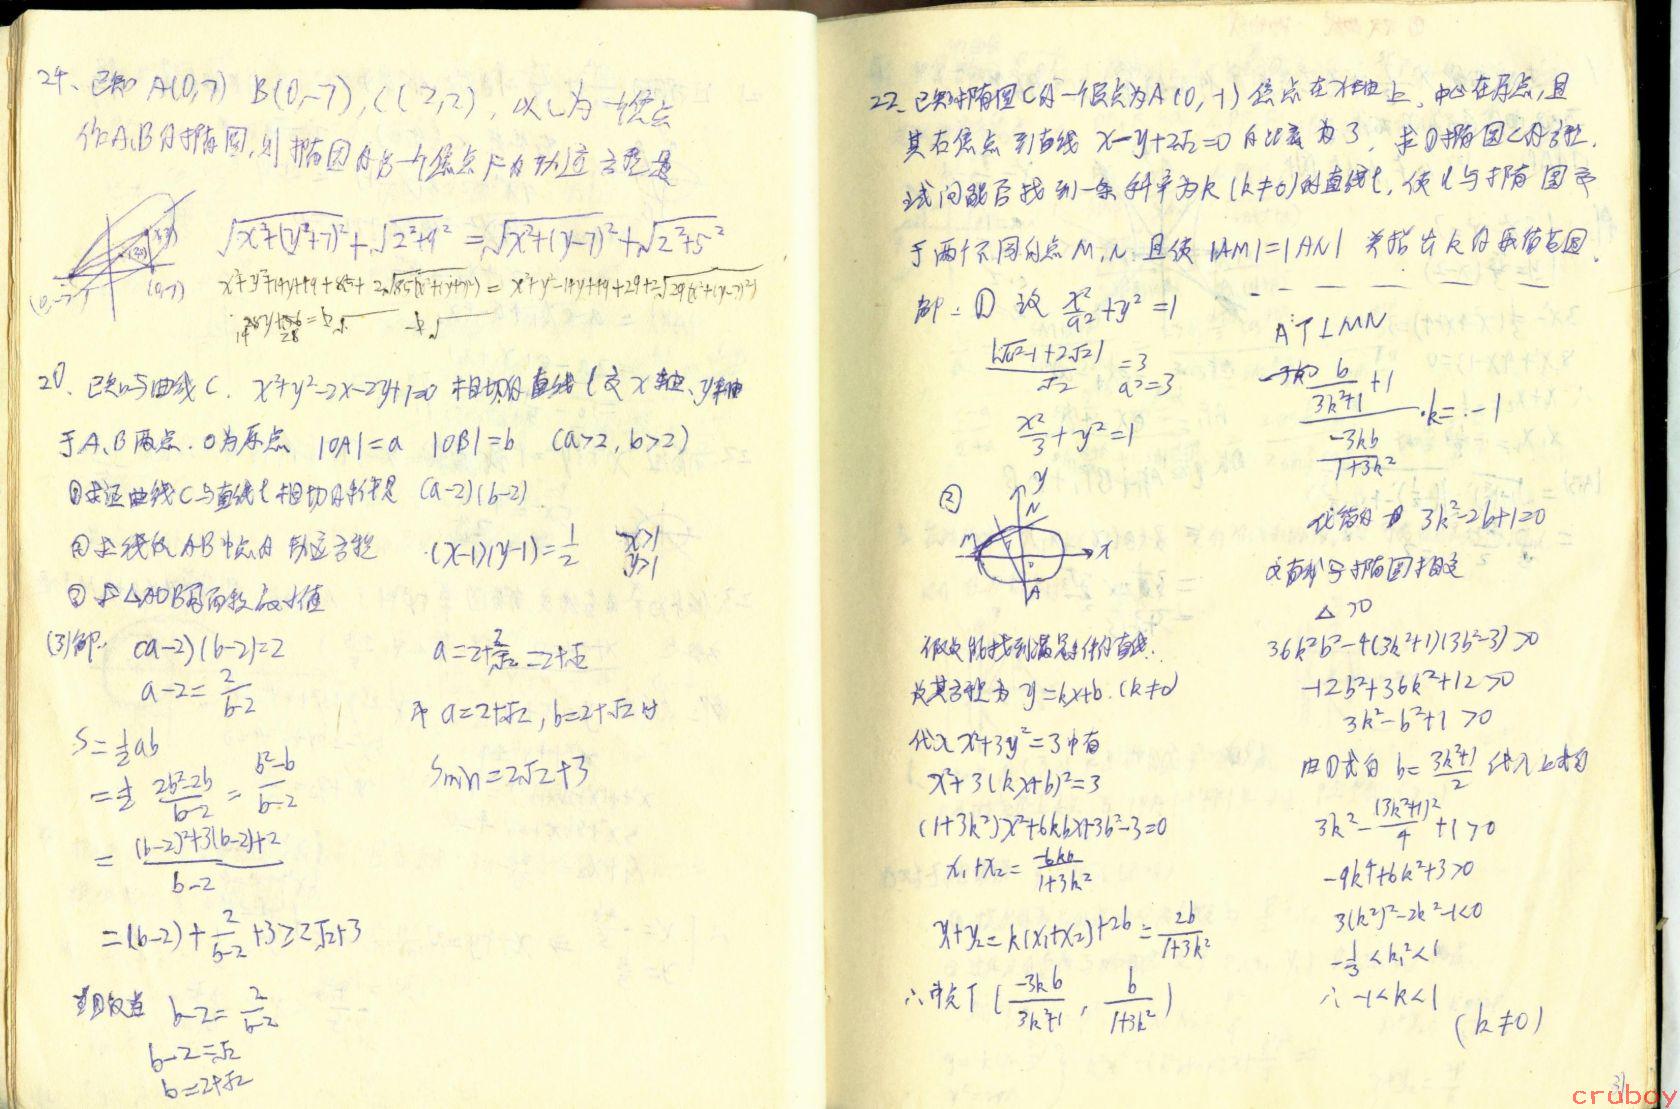 24、已知 A(0,7) B(0,-7), C(2,2), 以C为一个焦点
作A、B的椭圆, 则椭圆的另一个焦点F的轨迹方程是
(0,-7) (0,7)
√x²+(y+7)² + √2²+9² = √x²+(y-7)² + √2²+5²
x²+y²+14y+49+85+2√85(x²+(y+7)²) = x²+y²-14y+49+29+2√29(x²+(y-7)²)
21. 已知与曲线C. x²+y²-2x-2y+1=0 相切的直线l交x轴、y轴
于A、B两点. O为原点 |OA|=a |OB|=b (a>2, b>2)
①求证曲线C与直线l相切的条件是 (a-2)(b-2)
②求线段AB中点的轨迹方程 (x-1)(y-1)=1/2 x>1 y>1
③求△AOB的面积最小值
(3)解: (a-2)(b-2)=2
a-2=2/(b-2)
S=½ab
=½ (2b²-2b)/(b-2) = (b²-b)/(b-2)
= ((b-2)²+3(b-2)+2)/(b-2)
=(b-2)+2/(b-2)+3≥2√2+3
当且仅当 b-2=2/(b-2)
b-2=√2
b=2+√2
a=2+2/√2=2+√2
当 a=2+√2, b=2+√2时
Smin=2√2+3
22. 已知椭圆C的一个顶点为A(0,-1) 焦点在x轴上, 中心在原点, 且
其右焦点到直线 x-y+2√2=0 的距离为3, 求①椭圆C的方程.
②试问能否找到一条斜率为k (k≠0)的直线l, 使l与椭圆交
于两个不同的点M, N 且使 |AM|=|AN| 并指出k的取值范围.
解: ① 设 x²/a²+y²=1
|√a²-1+2√2|/√2 =3
a²=3
x²/3+y²=1
②
y
N
M
x
A
假设能找到满足条件的直线.
设其方程为 y=kx+b. (k≠0)
代入 x²+3y²=3中有
x²+3(kx+b)²=3
(1+3k²)x²+6kbx+3b²-3=0
x₁+x₂=-6kb/(1+3k²)
y₁+y₂=k(x₁+x₂)+2b=2b/(1+3k²)
∴中点T (-3kb/(3k²+1), b/(1+3k²))
AT⊥MN
(b/(3k²+1)+1)/(-3kb/(1+3k²))·k=-1
化简得 3k²-2b+1=0
又直线与椭圆相交
△>0
36k²b²-4(3k²+1)(3b²-3)>0
-12b²+36k²+12>0
3k²-b²+1>0
由①式有 b=(3k²+1)/2 代入上式有
3k²-(3k²+1)²/4+1>0
-9k⁴+6k²+3>0
3(k²)²-2k²-1<0
-1/3<k²<1
∴ -1<k<1
(k≠0)
31
cruboy